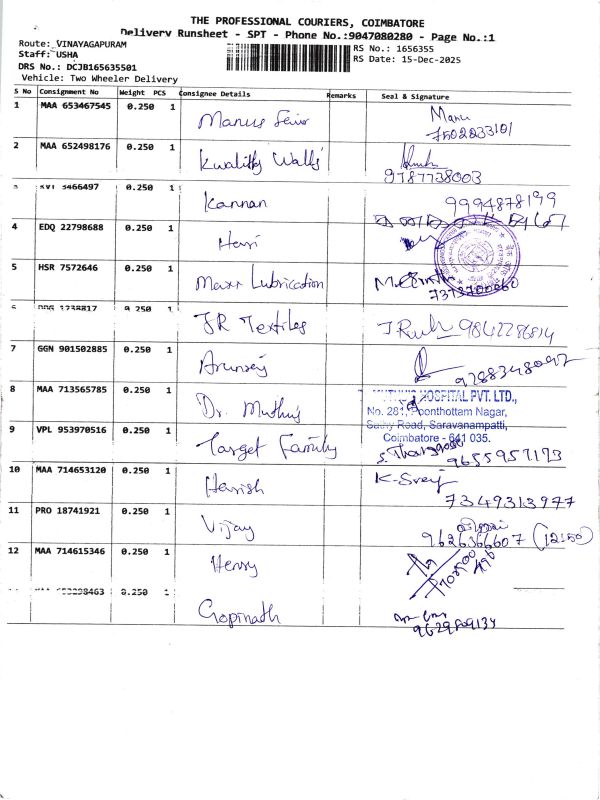 THE PROFESSIONAL COURIERS, COIMBATORE
Delivery Runsheet - SPT - Phone No.:9047080280 - Page No.:1
Route: VINAYAGAPURAM
RS No.: 1656355
Staff: USHA
RS Date: 15-Dec-2025
DRS No.: DCJB165635501
Vehicle: Two Wheeler Delivery
S No Consignment No Weight PCS Consignee Details Remarks Seal & Signature
1 MAA 653467545 0.250 1
Manu
7502233101
2 MAA 652498176 0.250 1 Kwality Walls
9787738003
3466497 0.250 1 Kannan 9994878199
4 EDQ 22798688 0.250 1 Hari
5 HSR 7572646 0.250 1 Maxx Lubrication
7373700060
1238817 0.250 1 JR Textiles 9842286814
7 GGN 901502885 0.250 1
8 MAA 713565785 0.250 1 Dr. Muthus
HOSPITAL PVT. LTD.,
No. 281, Poonthottam Nagar,
Sathy Road, Saravanampatti,
Coimbatore - 641 035.
9 VPL 953970516 0.250 1 Target Family
9655957173
10 MAA 714653120 0.250 1 Harish
7349313977
11 PRO 18741921 0.250 1 Vijay
9626366607 (12:50)
12 MAA 714615346 0.250 1 Henry
0.250 1 Gopinath